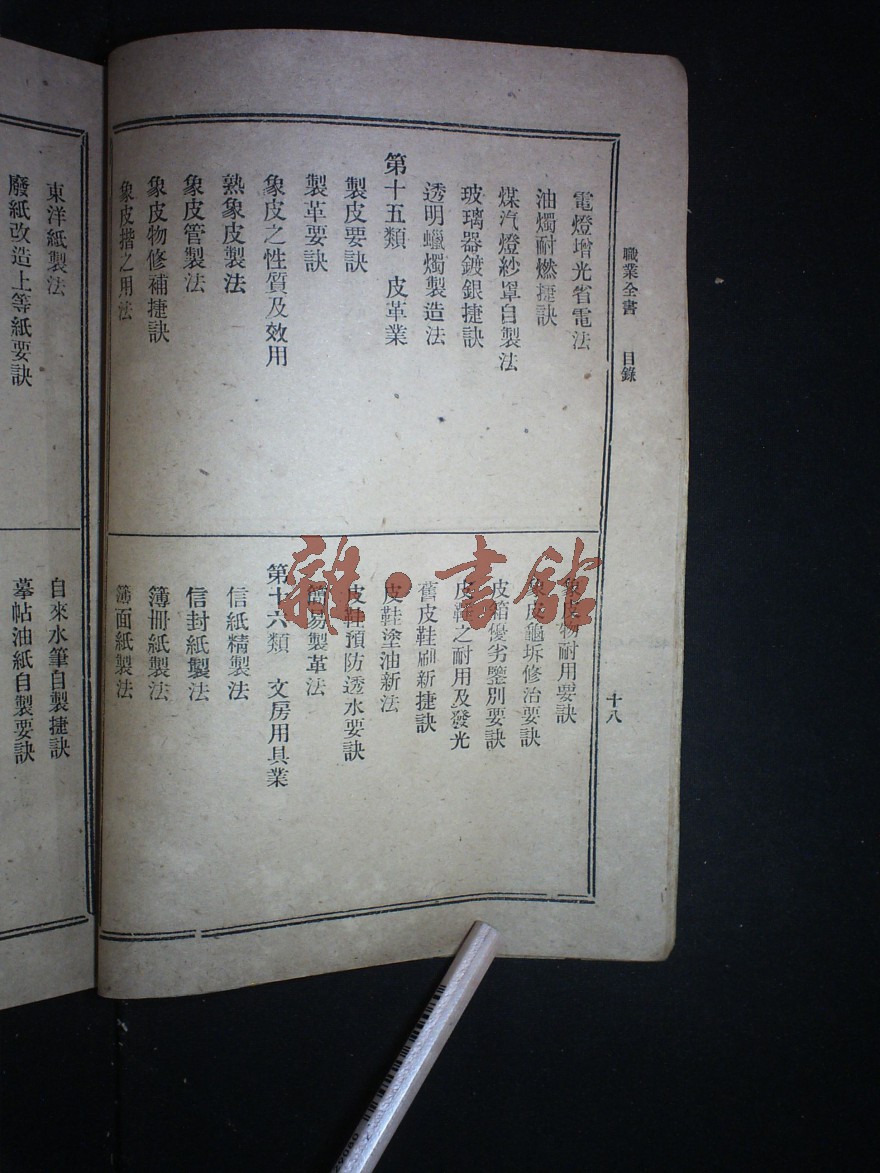 職業全書 目錄
十八
電燈增光省電法
油燭耐燃捷訣
煤汽燈紗罩自製法
玻璃器鍍銀捷訣
透明蠟燭製造法
第十五類 皮革業
製皮要訣
製革要訣
象皮之性質及效用
熟象皮製法
象皮管製法
象皮物修補捷訣
象皮揩之用法
象皮物耐用要訣
象皮龜坼修治要訣
皮箱優劣鑒別要訣
皮鞋之耐用及發光
舊皮鞋刷新捷訣
皮鞋塗油新法
皮鞋預防透水要訣
簡易製革法
第十六類 文房用具業
信紙精製法
信封紙製法
簿冊紙製法
簿面紙製法
東洋紙製法
廢紙改造上等紙要訣
自來水筆自製捷訣
摹帖油紙自製要訣
雜·書館